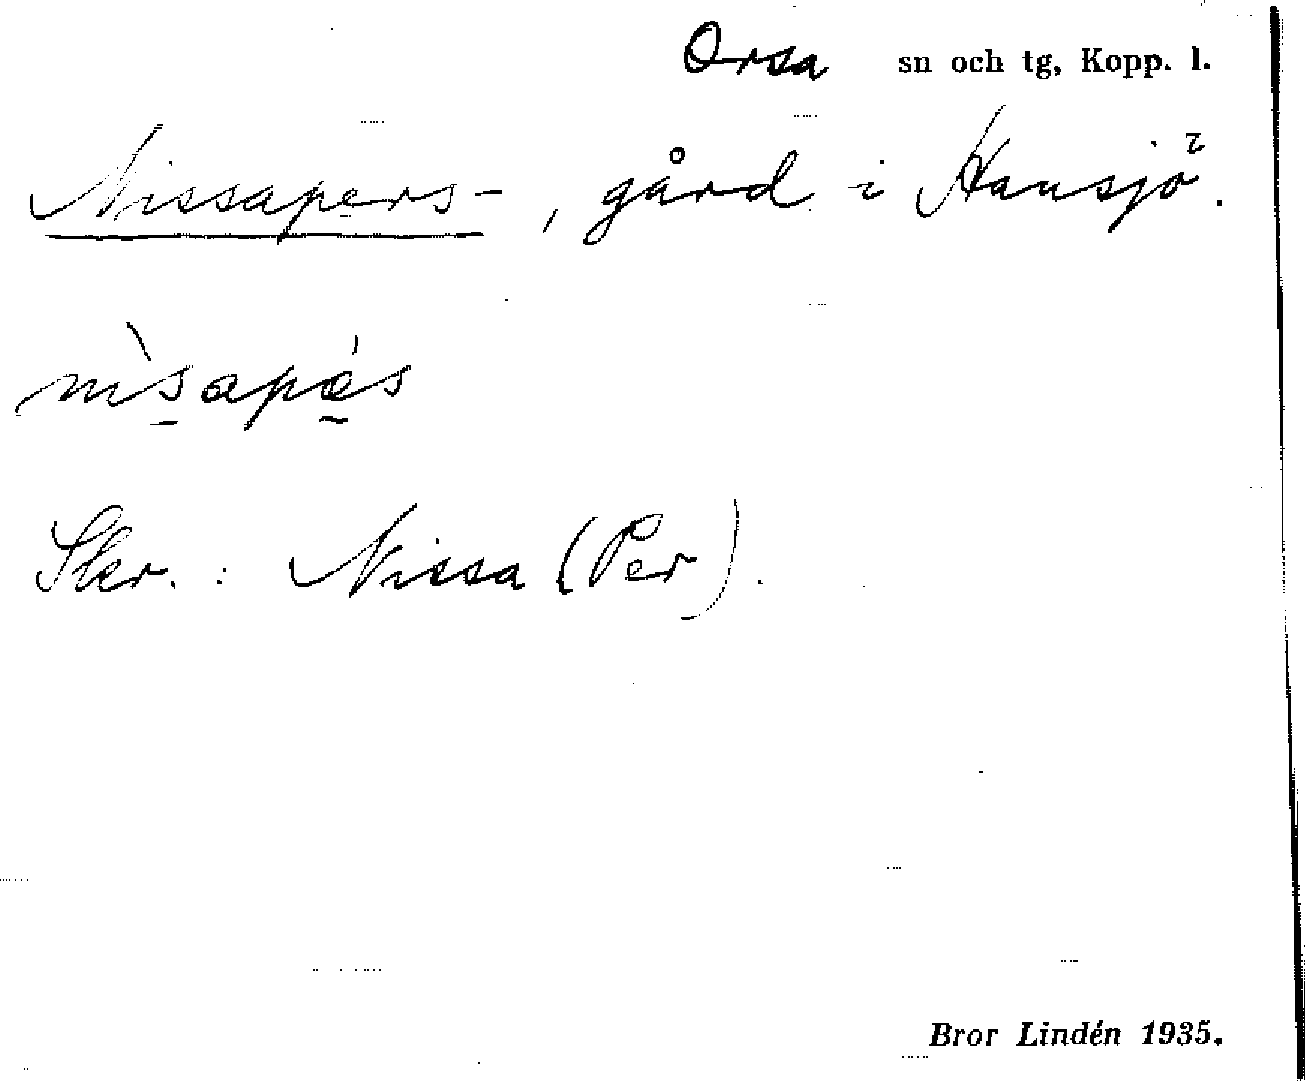 Orsa sn och tg, Kopp. l.
Nissapers-, gård i Hansjö.
nìsapás
Skr.: Nissa (Per).
Bror Lindén 1935.